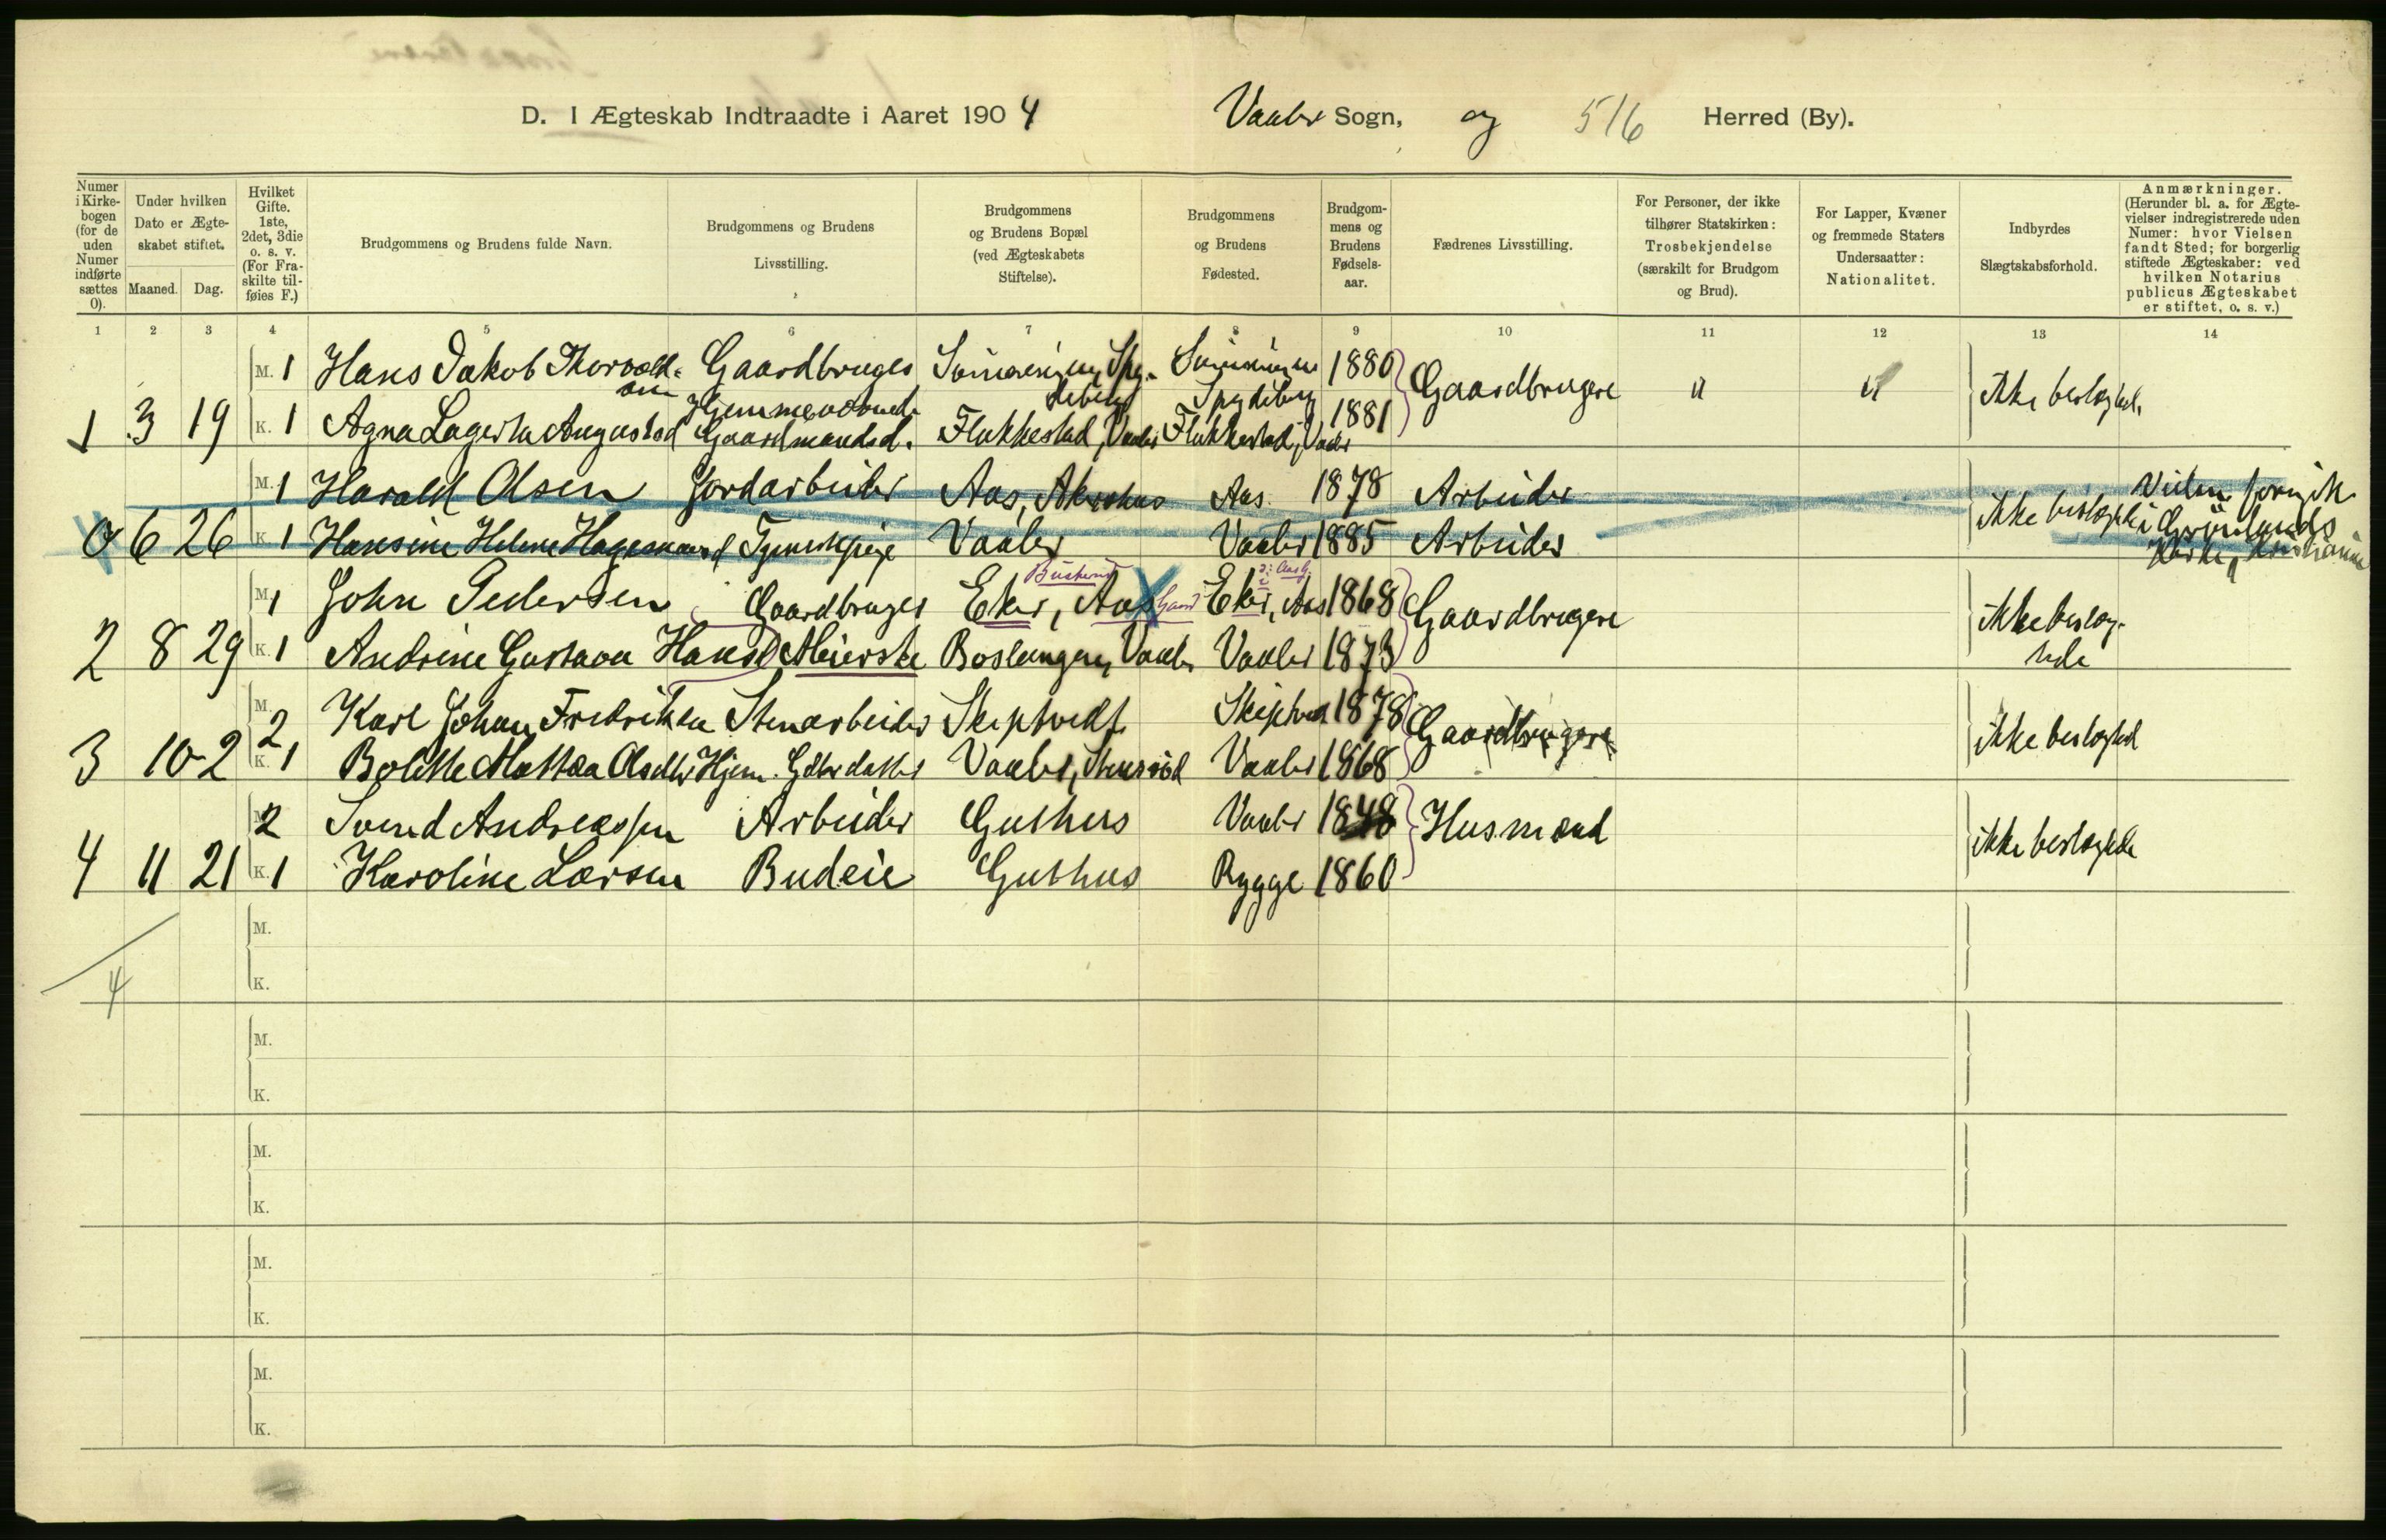 D. I Ægteskab Indtraadte i Aaret 1904 Vaaler Sogn, og 5/6 Herred (By).
Numer i Kirkebogen (for de uden Numer indførte sættes 0).
Under hvilken Dato er Ægteskabet stiftet.
Maaned. Dag.
Hvilket Gifte. 1ste, 2det, 3die o. s. v. (For Fraskilte tilføies F.)
Brudgommens og Brudens fulde Navn.
Brudgommens og Brudens Livsstilling.
Brudgommens og Brudens Bopæl (ved Ægteskabets Stiftelse).
Brudgommens og Brudens Fødested.
Brudgommens og Brudens Fødselsaar.
Fædrenes Livsstilling.
For Personer, der ikke tilhører Statskirken: Trosbekjendelse (særskilt for Brudgom og Brud).
For Lapper, Kvæner og fremmede Staters Undersaatter: Nationalitet.
Indbyrdes Slægtskabsforhold.
Anmærkninger. (Herunder bl. a. for Ægtevielser indregistrerede uden Numer: hvor Vielsen fandt Sted; for borgerlig stiftede Ægteskaber: ved hvilken Notarius publicus Ægteskabet er stiftet, o. s. v.)
1 2 3 4 5 6 7 8 9 10 11 12 13 14
M. 1 Hans Jakob Thorvald- Gaardbruger 1880 Gaardbrugere " " ikke beslægted.
sen Hjemmeværende Spydeberg
1 3 19 K. 1 Agna Lagertha Augustad Gaardmandsd. Flukkestad, Vaaler Flukkestad, Vaaler 1881
M. 1 Harald Olsen Jordarbeider Aas, Akershus Aas 1878 Arbeider Vielsen foregik
0 6 26 K. 1 Hansine Helene Hagesnaard Tjenestepige Vaaler Vaaler 1885 Arbeider ikke beslægtede i Grønlands
Kirke, Kristiania
Buskerud
M. 1 John Pedersen Gaardbruger Eker, Aas Gaard Eker, Aas 1868 Gaardbrugere ikke beslæg-
2 8 29 K. 1 Andrine Gustava Hansd. Meierske Boslangen, Vaaler Vaaler 1873 tede
M. 2 Karl Johan Fredriksen Stenarbeider Skiptvedt Skiptvedt 1878 Gaardbrugere ikke beslægted
3 10 2 K. 1 Bolette Mattea Olsdtr Hjem. Gdbr datter Vaaler, Vaaler 1868
M. 2 Svend Andreassen Arbeider Guthus Vaaler 1848 Husmænd ikke beslægtede
4 11 21 K. 1 Karoline Larsen Budeie Guthus Rygge 1860
M.
4 K.
M.
K.
M.
K.
M.
K.
M.
K.